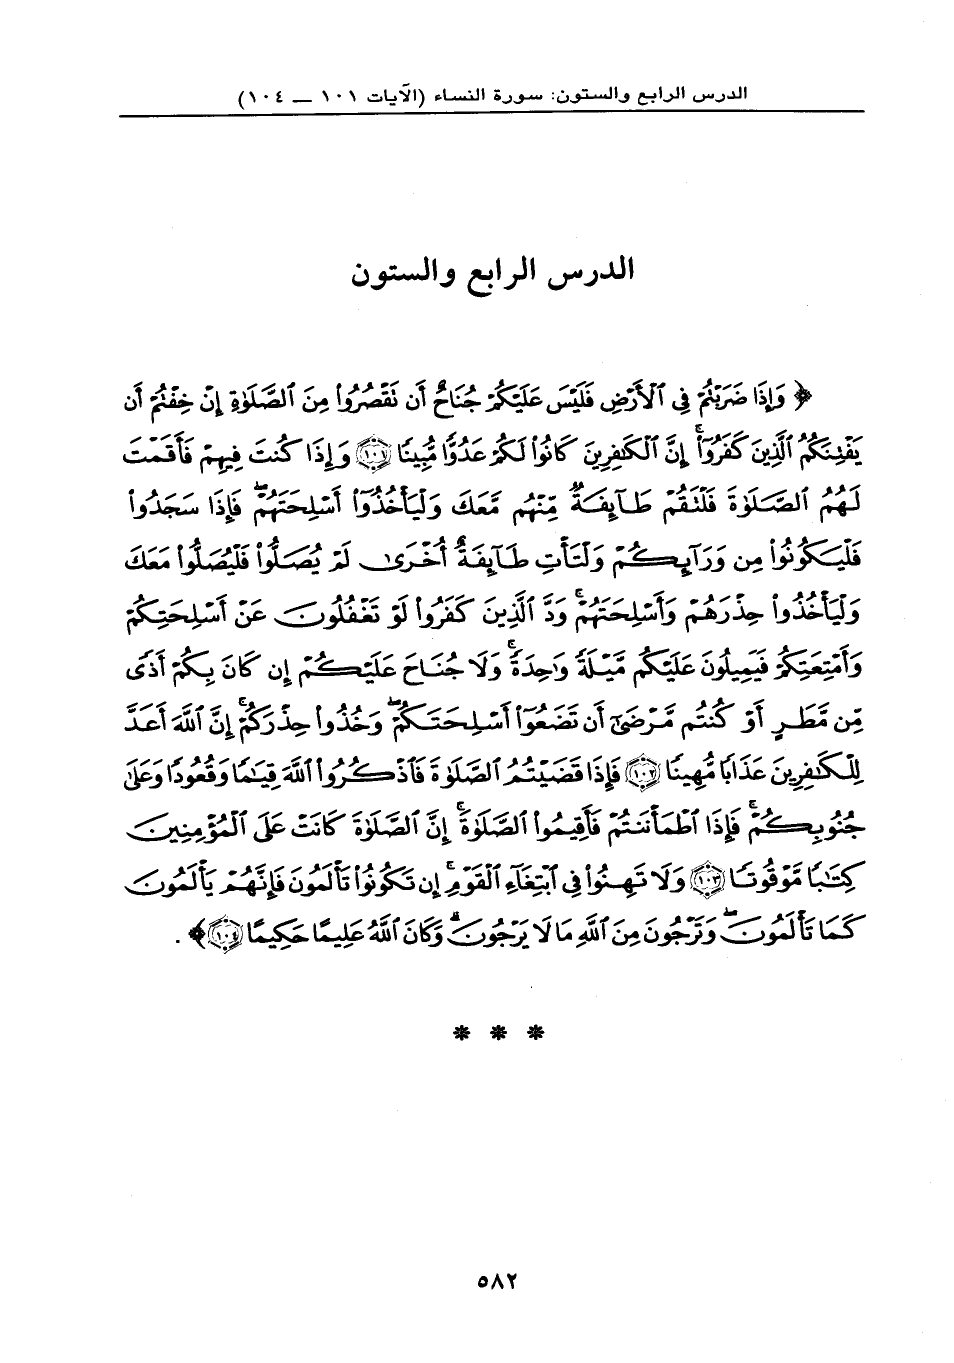 الدرس الرابع والستون: سورة النساء (الآيات ١٠١ ــ ١٠٤)
الدرس الرابع والستون
﴿ وَإِذَا ضَرَبْتُمْ فِي ٱلْأَرْضِ فَلَيْسَ عَلَيْكُمْ جُنَاحٌ أَن نَقْصُرُوا۟ مِنَ ٱلصَّلَوٰةِ إِنْ خِفْتُمْ أَن
يَفْتِنَكُمُ ٱلَّذِينَ كَفَرُوٓا۟ ۚ إِنَّ ٱلْكَـٰفِرِينَ كَانُوا۟ لَكُمْ عَدُوًّا مُّبِينًا ﴿١٠١﴾ وَإِذَا كُنتَ فِيهِمْ فَأَقَمْتَ
لَهُمُ ٱلصَّلَوٰةَ فَلْتَقُمْ طَآئِفَةٌ مِّنْهُم مَّعَكَ وَلْيَأْخُذُوٓا۟ أَسْلِحَتَهُمْ ۖ فَإِذَا سَجَدُوا۟
فَلْيَكُونُوا۟ مِن وَرَآئِكُمْ وَلْتَأْتِ طَآئِفَةٌ أُخْرَىٰ لَمْ يُصَلُّوا۟ فَلْيُصَلُّوا۟ مَعَكَ
وَلْيَأْخُذُوا۟ حِذْرَهُمْ وَأَسْلِحَتَهُمْ ۗ وَدَّ ٱلَّذِينَ كَفَرُوا۟ لَوْ تَغْفُلُونَ عَنْ أَسْلِحَتِكُمْ
وَأَمْتِعَتِكُمْ فَيَمِيلُونَ عَلَيْكُم مَّيْلَةً وَٰحِدَةً ۚ وَلَا جُنَاحَ عَلَيْكُمْ إِن كَانَ بِكُمْ أَذًى
مِّن مَّطَرٍ أَوْ كُنتُم مَّرْضَىٰٓ أَن تَضَعُوٓا۟ أَسْلِحَتَكُمْ ۖ وَخُذُوا۟ حِذْرَكُمْ ۗ إِنَّ ٱللَّهَ أَعَدَّ
لِلْكَـٰفِرِينَ عَذَابًا مُّهِينًا ﴿١٠٢﴾ فَإِذَا قَضَيْتُمُ ٱلصَّلَوٰةَ فَٱذْكُرُوا۟ ٱللَّهَ قِيَـٰمًا وَقُعُودًا وَعَلَىٰ
جُنُوبِكُمْ ۚ فَإِذَا ٱطْمَأْنَنتُمْ فَأَقِيمُوا۟ ٱلصَّلَوٰةَ ۚ إِنَّ ٱلصَّلَوٰةَ كَانَتْ عَلَى ٱلْمُؤْمِنِينَ
كِتَـٰبًا مَّوْقُوتًا ﴿١٠٣﴾ وَلَا تَهِنُوا۟ فِي ٱبْتِغَآءِ ٱلْقَوْمِ ۖ إِن تَكُونُوا۟ تَأْلَمُونَ فَإِنَّهُمْ يَأْلَمُونَ
كَمَا تَأْلَمُونَ ۖ وَتَرْجُونَ مِنَ ٱللَّهِ مَا لَا يَرْجُونَ ۗ وَكَانَ ٱللَّهُ عَلِيمًا حَكِيمًا ﴿١٠٤﴾ ﴾ .
* * *
٥٨٢